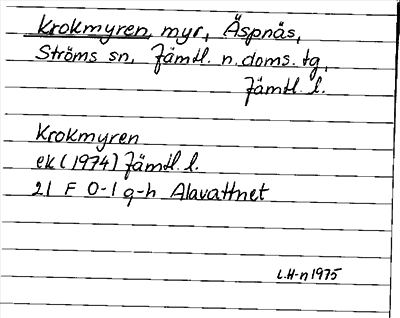 Krokmyren, myr, Äspnäs,
Ströms sn, Jämtl. n. doms. tg,
Jämtl. l.
Krokmyren
ek (1974) Jämtl. l.
21 F 0-1 g-h Alavattnet
L.H-n 1975